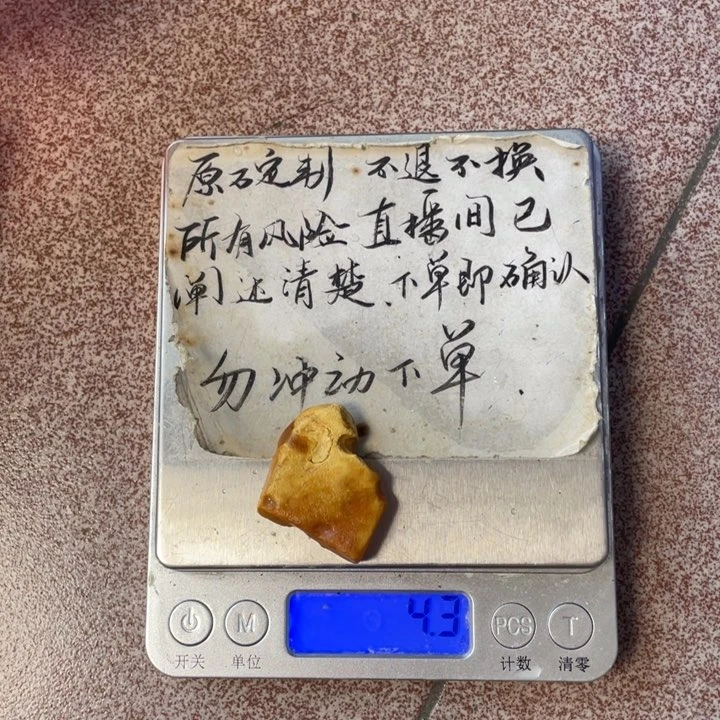 原石定制 不退不换
所有风险直播间已
阐述清楚.下单即确认
勿冲动下单.
4.3
M
PCS
T
开关
单位
计数
清零